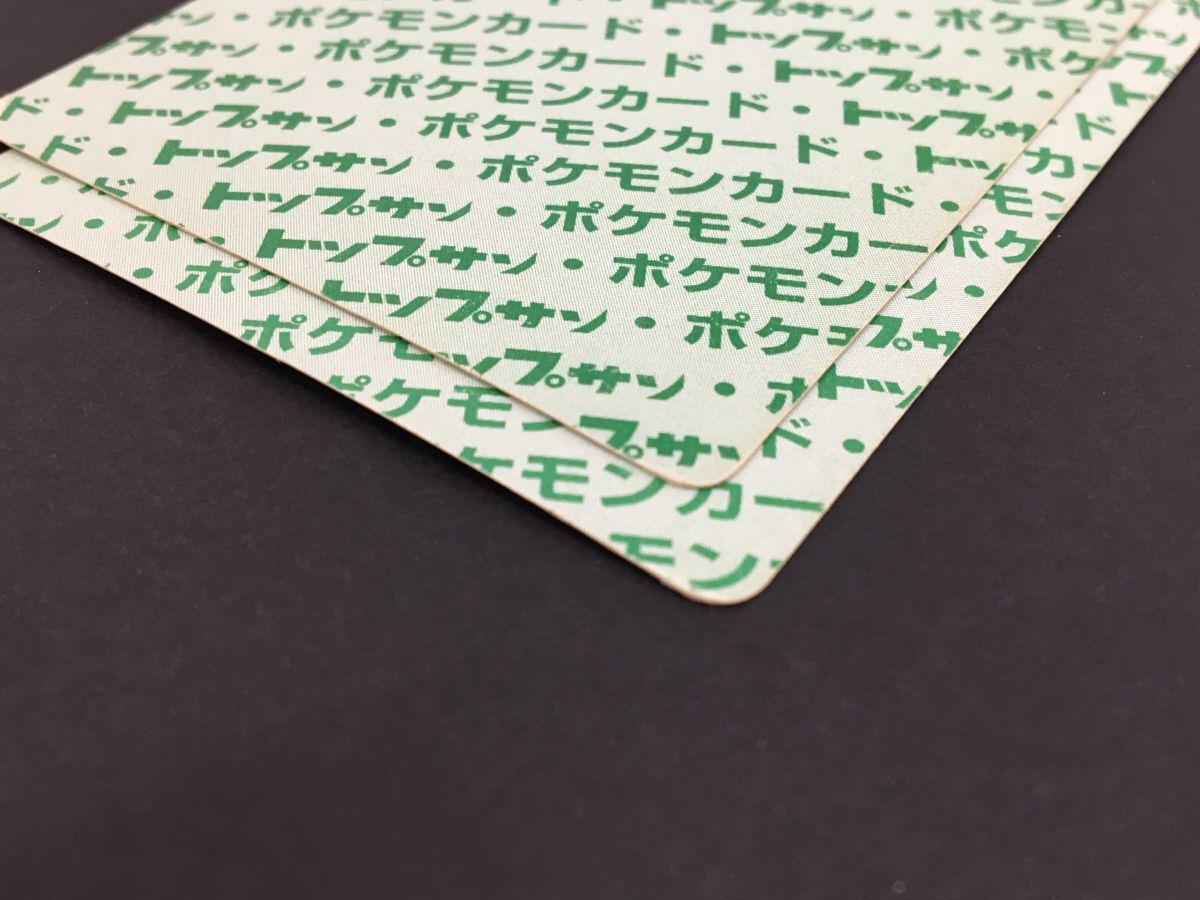 ポケモンカード・トップサン
トップサン・ポケモンカード・トップサン・ポケモン
トップサン・ポケモンカード・トップサン・ポケ
トップサン・ポケモンカード・トップサン・
ド・トップサン・ポケモンカード・トップサン
ド・トップサン・ポケモンカード・トッ
トップサン・ポケモンカード・
トップサン・ポケモンカー
トップサン・ポケモン
トップサン・ポケ
トップサン・ポ
プサン
ド・
ド・
ポケ
モン
カ
ポケ
トップ
プサ
トッ
ド・
ポケ
ポケモ
ポケモン
ケモンカー
モン